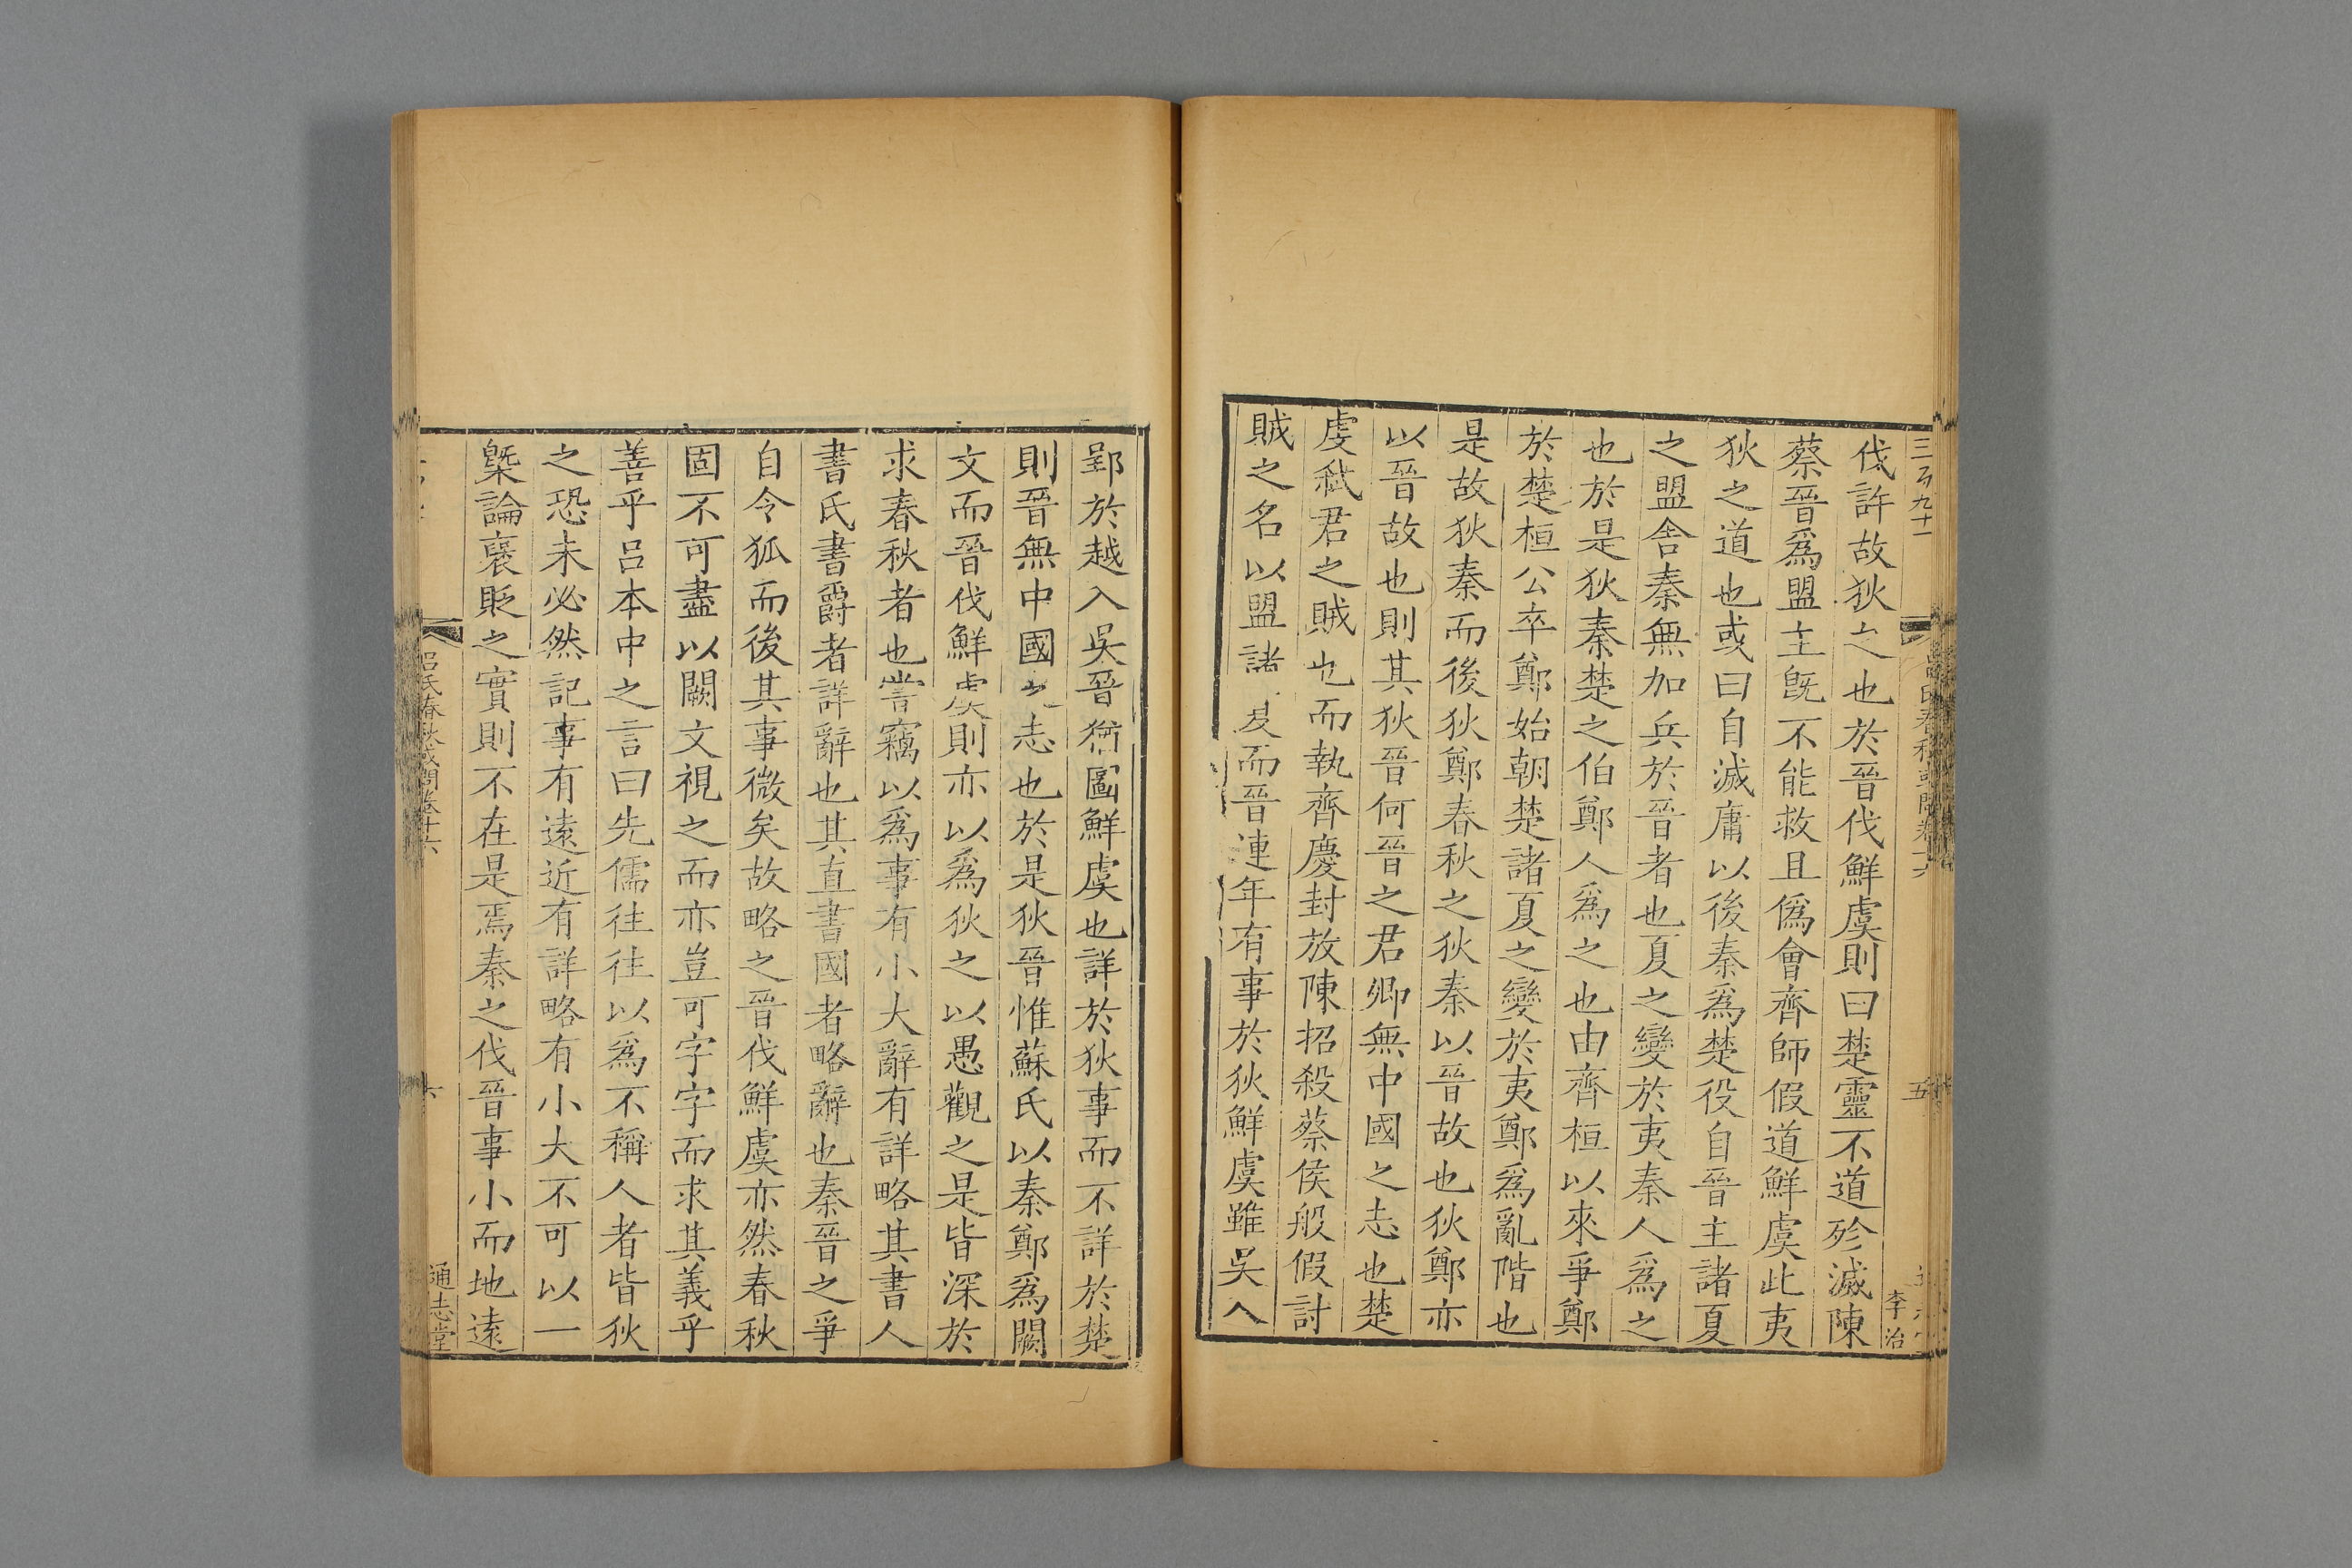 三百九十一
呂氏春秋或問卷十六
五
李治
伐許故狄之也於晉伐鮮虞則曰楚靈不道殄滅陳
蔡晉爲盟主旣不能救且僞會齊師假道鮮虞此夷
狄之道也或曰自滅庸以後秦爲楚役自晉主諸夏
之盟舍秦無加兵於晉者也夏之變於夷秦人爲之
也於是狄秦楚之伯鄭人爲之也由齊桓以來爭鄭
於楚桓公卒鄭始朝楚諸夏之變於夷鄭爲亂階也
是故狄秦而後狄鄭春秋之狄秦以晉故也狄鄭亦
以晉故也則其狄晉何晉之君卿無中國之志也楚
虔弑君之賊也而執齊慶封放陳招殺蔡侯般假討
賊之名以盟諸夏而晉連年有事於狄鮮虞雖吳入
郢於越入吳晉猶圖鮮虞也詳於狄事而不詳於楚
則晉無中國之志也於是狄晉惟蘇氏以秦鄭爲闕
文而晉伐鮮虞則亦以爲狄之以愚觀之是皆深於
求春秋者也嘗竊以爲事有小大辭有詳略其書人
書氏書爵者詳辭也其直書國者略辭也秦晉之爭
自令狐而後其事微矣故略之晉伐鮮虞亦然春秋
固不可盡以闕文視之而亦豈可字字而求其義乎
善乎呂本中之言曰先儒往往以爲不稱人者皆狄
之恐未必然記事有遠近有詳略有小大不可以一
槩論襃貶之實則不在是焉秦之伐晉事小而地遠
呂氏春秋或問卷十六
六
通志堂